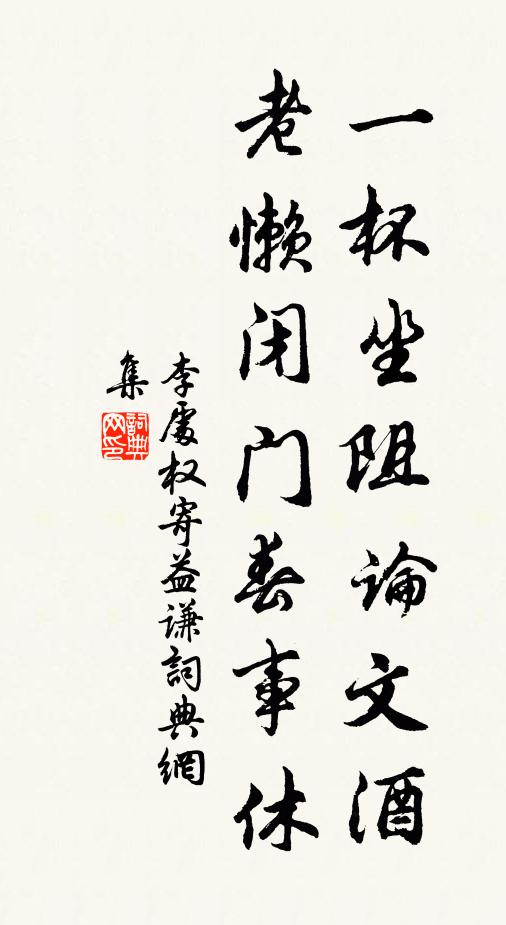 一杯坐阻論文酒
老懶闭门春事休
李處权寄益谦詞典網
集
詞典
网印